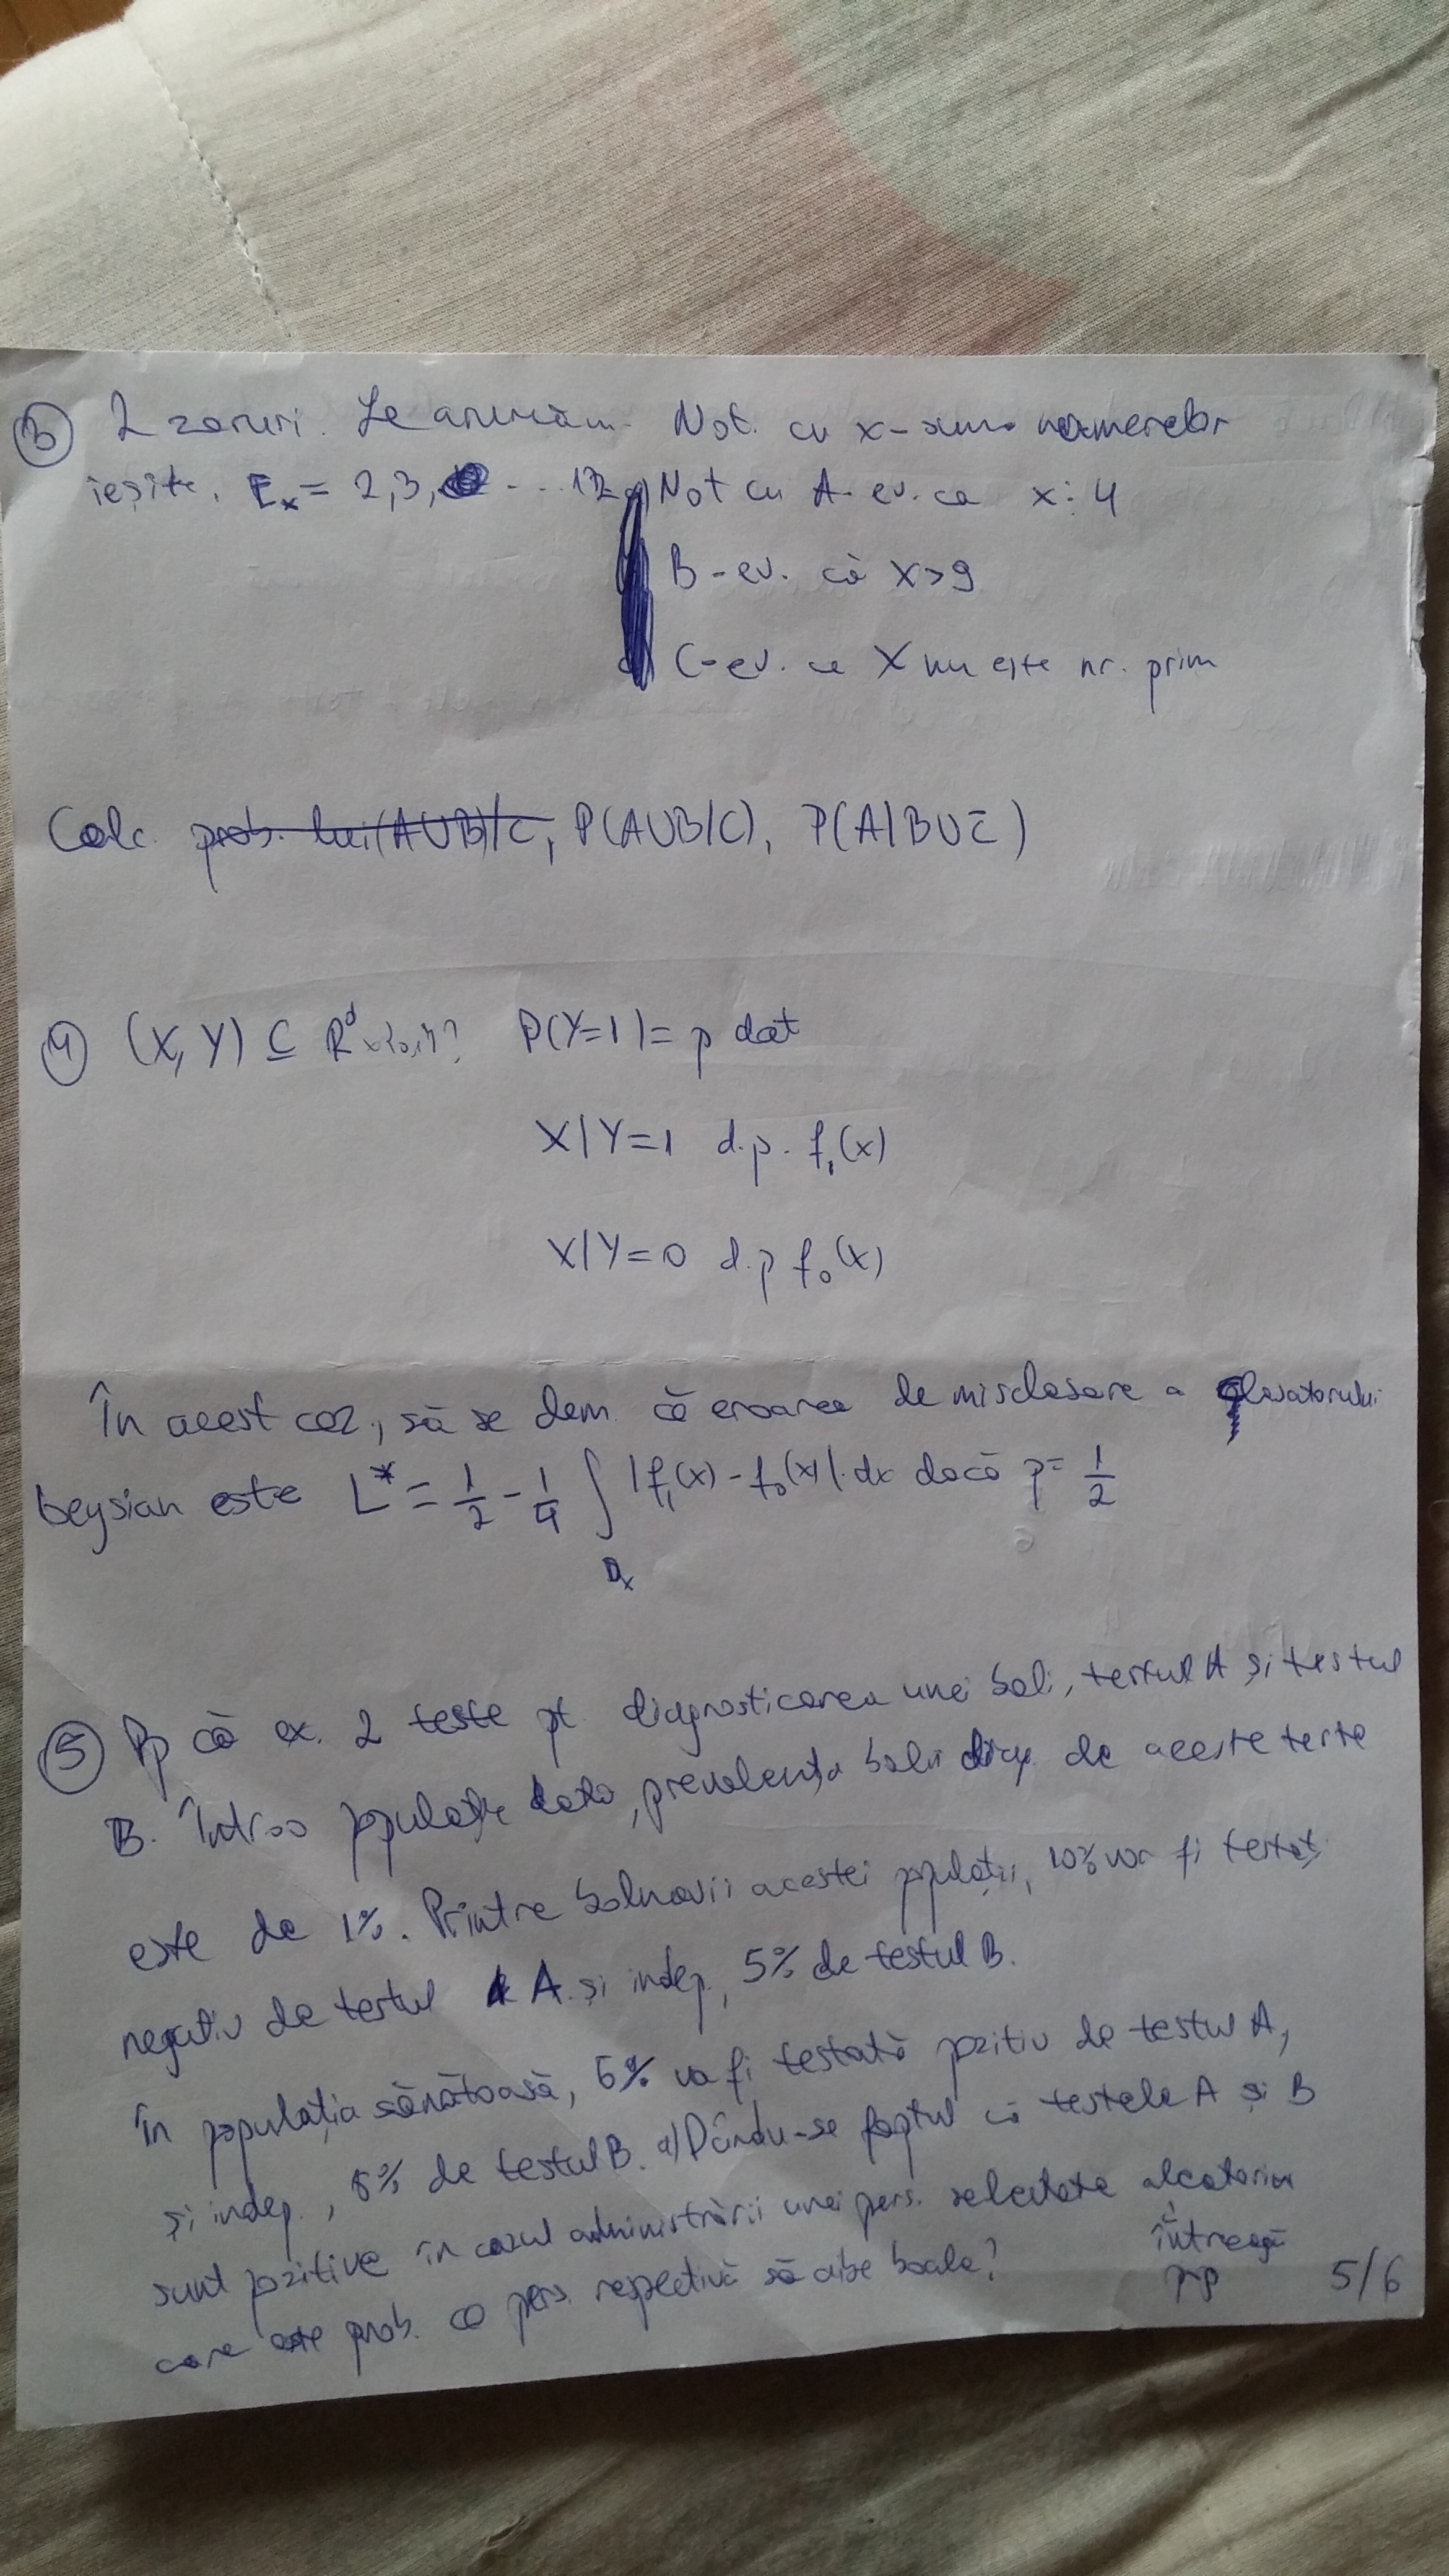 ③ 2 zaruri. Le aruncăm. Not. cu x-suma numerelor
ieșite. Ex = 2,3, ... 12 Not cu A-ev. ca x⋮4
B-ev. că X>9
C-ev. ca X nu este nr. prim
Calc. prob. lui (A∪B)/C, P(A∪B/C), P(A/B∪C̄)
④ (X,Y) ⊆ R^d x{0,1}? P(Y=1)=p dat
X/Y=1 d.p. f₁(x)
X/Y=0 d.p f₀(x)
În acest caz, să se dem. că eroarea de misclasare a clasatorului
beysian este L* = 1/2 - 1/4 ∫_Dx |f₁(x) - f₀(x)|·dx dacă p = 1/2
⑤ Pp că ex. 2 teste pt. diagnosticarea unei boli, testul A și testul
B. Într-o populație dată, prevalența bolii de aceste teste
este de 1%. Printre bolnavii acestei populații, 10% vor fi testați
negativ de testul A și indep., 5% de testul B.
În populația sănătoasă, 6% va fi testată pozitiv de testul A,
și indep., 8% de testul B. a) Dându-se faptul că testele A și B
sunt pozitive în cazul administrării unei pers. selectate aleatoriu
întreaga
care este prob. ca pers. respectivă să aibe boala? pop
5/6